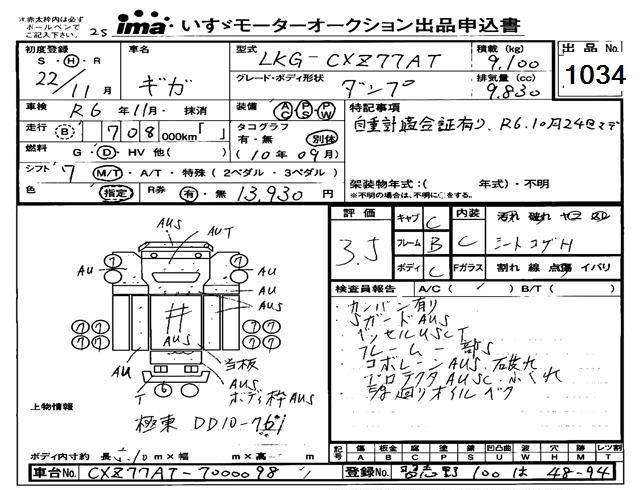 ※赤太枠内は必ずボールペンでご記入下さい。
25 ima いすゞモーターオークション出品申込書
初度登録 S・H・R 22/11月
車名 ギガ
型式 LKG-CXZ77AT
グレード・ボディ形状 ダンプ
積載(kg) 9,100
排気量(cc) 9.830
出品No. 1034
車検 R6年11月・抹消
装備 AC PS PW
特記事項
自重計適合証有り、R6.10月24日マデ
走行 B 708000km「 」
タコグラフ 有・無 別体
(10年09月)
燃料 G・D・HV 他( )
シフト 7 M/T・A/T・特殊(2ペダル・3ペダル)
色 指定 R券 有・無 13,930円
架装物年式:( 年式)・不明
※不明の場合は、不明に○をする。
評価 3.5
キャブ C
フレーム B
ボディ C
内装 C
Fガラス
汚れ 破れ
シートコゲH
割れ 線 点傷 イバリ
検査員報告 A/C( ) B/T( )
カンバン有り
SガードAUS
ベッセルUSCT
フレーム一部S
コボレーンAUS.石枕れ
プロテクタAUSC.ふくれ
AUS
AUT
AU
AU
AU
AUS
AUS
井
AU
当板
T
AUS
ボディ枠AUS
上物情報
極東 DD10-761
ボディ内寸約 長 .10m×幅 m×高 m
記号 傷A 板金B 腐C 塗P 錆S 凹凸曲U 波W 穴H 跡M レツ割T
車台No. CXZ77AT-7000098
登録No. 習志野 100は 48-94